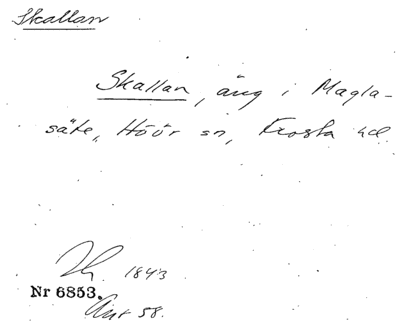 Skallan
Skallan, äng i Magla-
säte, Höör sn, Frosta hd.
1843
Nr 6853.
58.